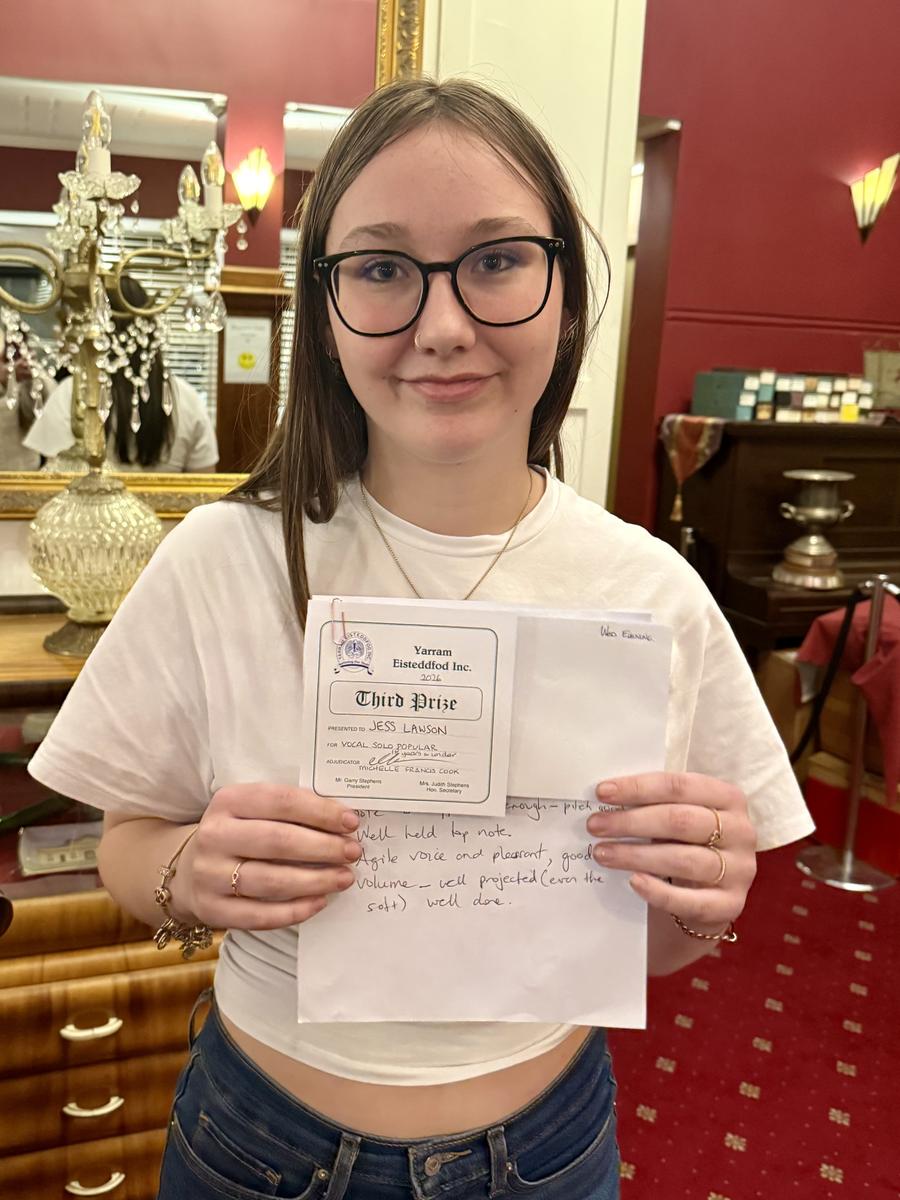 Wed Evening
Yarram
Eisteddfod Inc.
2026
Third Prize
PRESENTED TO JESS LAWSON
FOR VOCAL SOLO POPULAR
18 years & under
ADJUDICATOR
MICHELLE FRANCIS COOK
Mr. Garry Stephens
President
Mrs. Judith Stephens
Hon. Secretary
enough - pitch good
Well held top note.
Agile voice and pleasant, good
volume - well projected (even the
soft) well done.